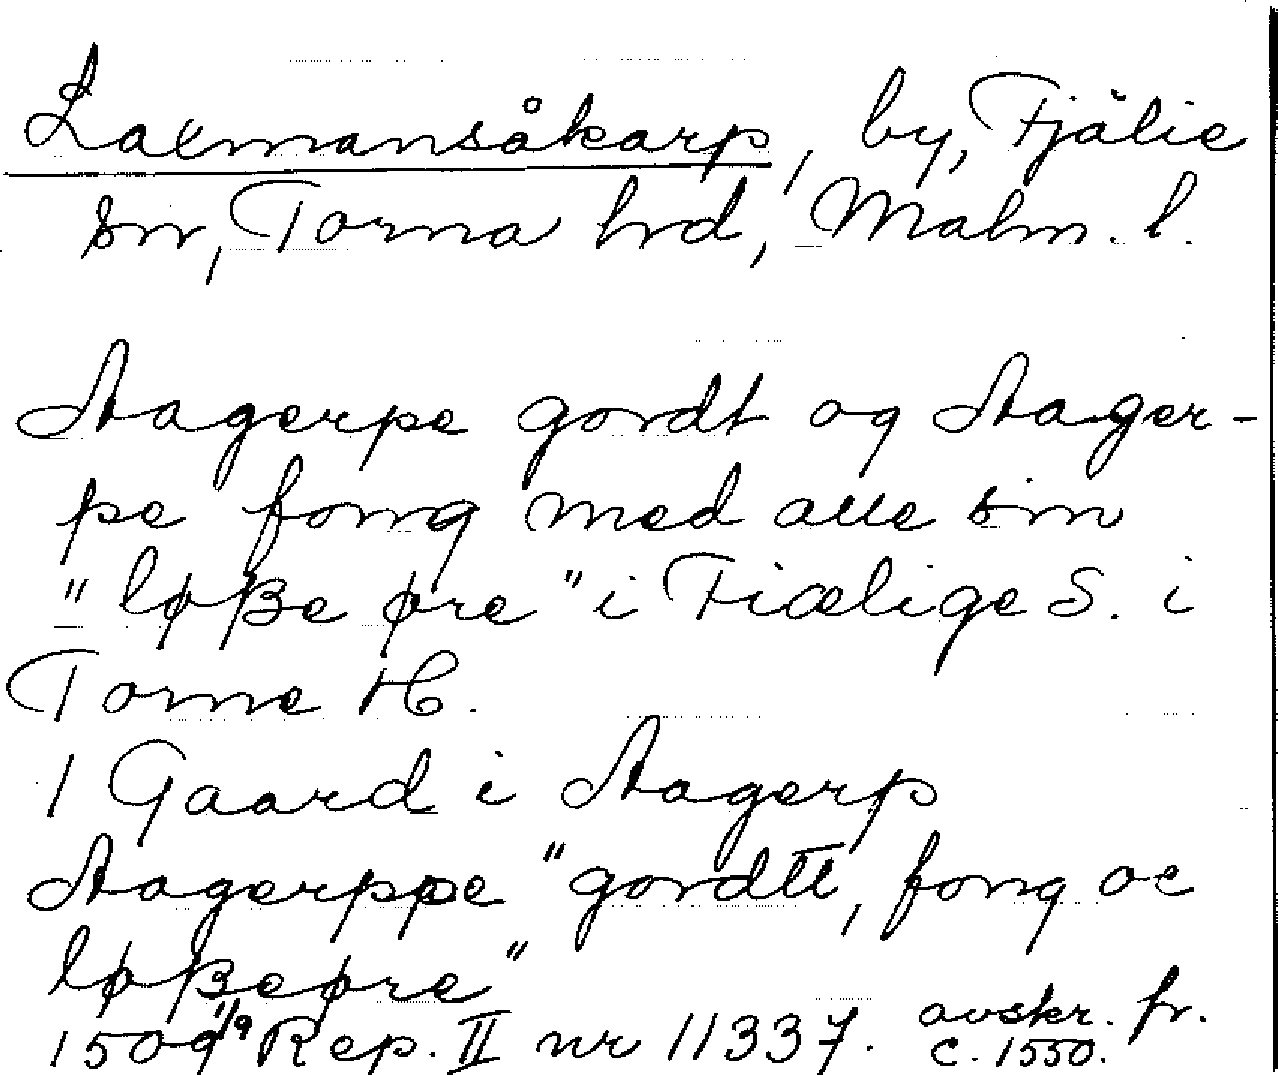 Laxmansåkarp, by, Fjälie
sn, Torna hrd, Malm. l.
Aagerpe gordt og Aager-
pe fong med alle sin
"løsze øre" i Fiælige S. i
Torne H.
1 Gaard i Aagerp
Aagerppe "gordtt, fong oc
løszeøre"
1509 1/9 Rep. II nr 11337. avskr. fr.
c. 1550.